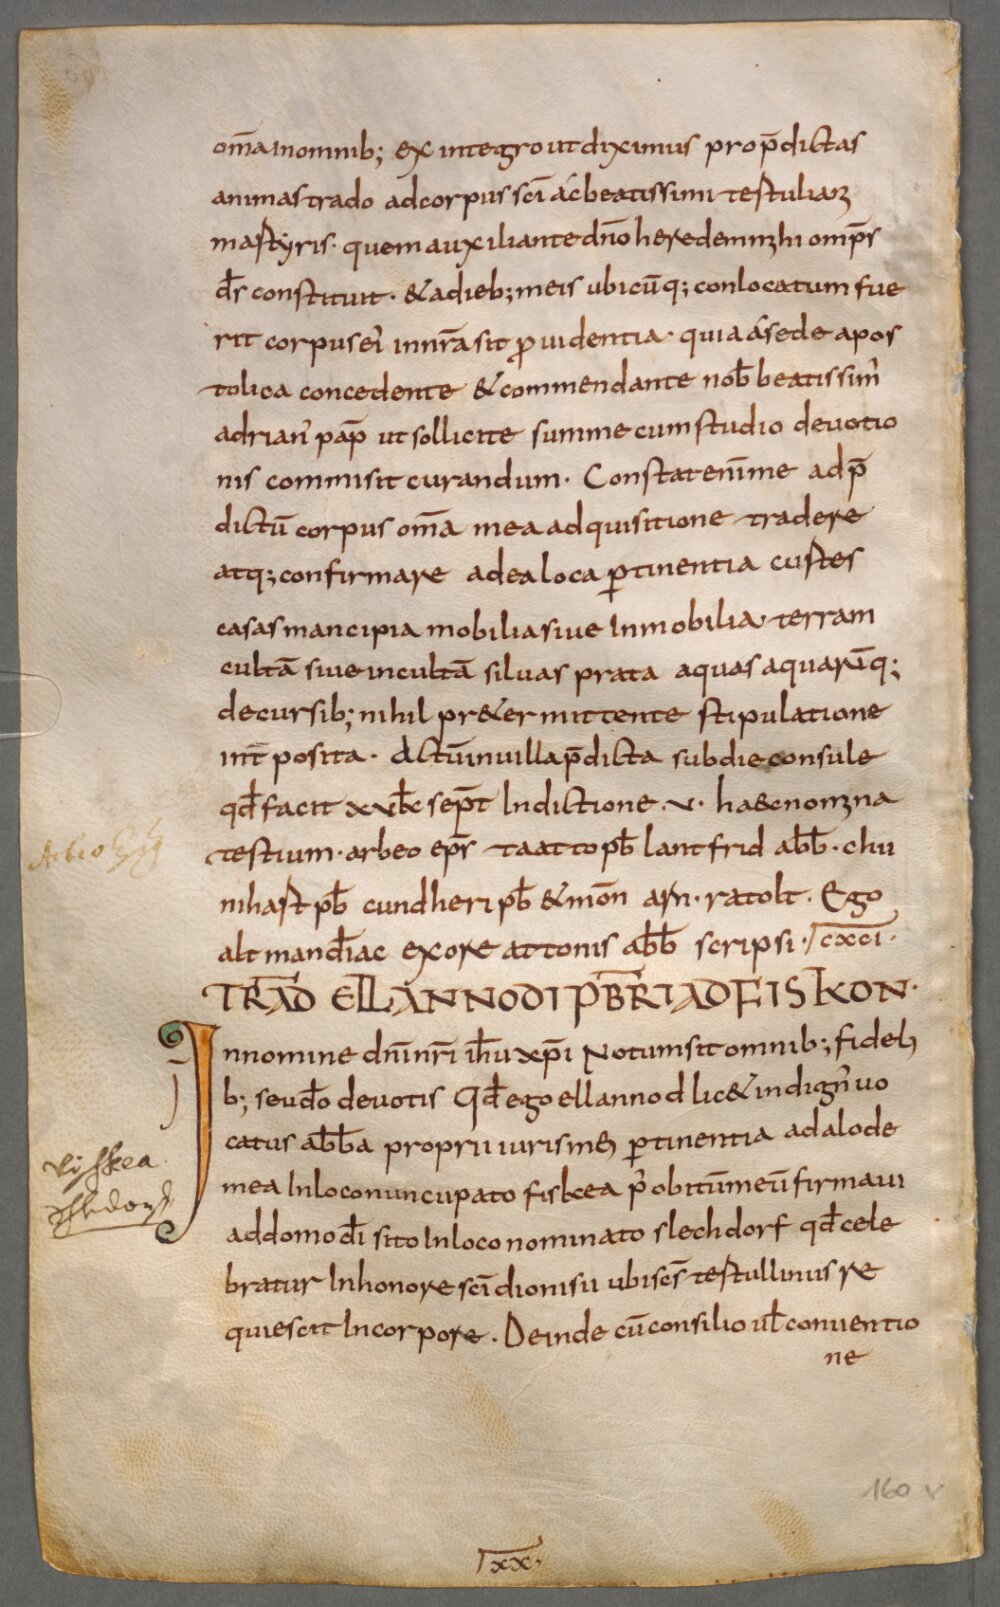 om̄a inomnib; ex integro ut diximus pro p̄dictas
animas trado ad corpus sc̄i ac beatissimi testuliani
mastyris· quem auxiliante dn̄o heredem mihi omp̄s
ds̄ constituit· & a dieb; meis ubicūq; conlocatum fue
rit corpus ei innr̄a sit ꝓuidentia· quia á sede apos
tolica concedente & commendante nob̄ beatissim̓
adrian̓ pap̄ ut sollicite summe cum studio deuotio
nis commisit curandum· Constat enī me ad p̄
dictū corpus om̄a mea adquisitione tradere
atq; confirmare ad ea loca ꝑtinentia custes
casas mancipia mobilia siue Inmobilia terram
cultā siue incultā siluas prata aquas aquarūq;
decursib; nihil pr&ermittente stipulatione
int̄ posita· Actū in uilla p̄dicta sub die consule
qd̄ facit xv kł sept̄ Indictione·v· haec nomina
testium· arbeo ep̄s taatto pb̄ lantfrid abb̄· chu
nihast pb̄ cundheri pb̄ & mōn arn· ratolt· Ego
altman diac̄ ex ore attonis abb̄ scripsi· cxci·
TRAD̄ ELLANNODI PB̄RI AD FISKON·
Innomine dn̄i nr̄i ih̄u xp̄i Notum sit omnib; fideli
b; seu dō deuotis Qd̄ ego ellannod lic& indign̓ uo
catus abb̄a proprii iuris mei ꝑtinentia ad alode
mea Inloco nuncupato fiskea p̓ obitū meū firmaui
ad domo dī sito Inloco nominato slechdorf qd̄ cele
bratur Inhonore sc̄i dionisii ubi sc̄s testullinus re
quiescit Incorpore· Deinde cū consilio uł conuentio
ne
viskea
160 v
xx·